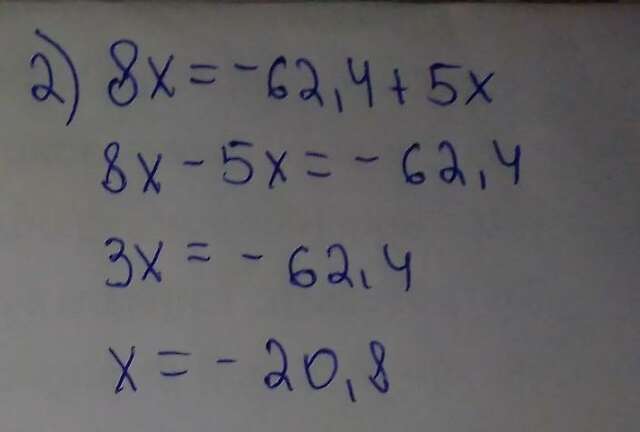 2) 8x = -62,4 + 5x
8x - 5x = - 62,4
3x = - 62,4
x = - 20,8